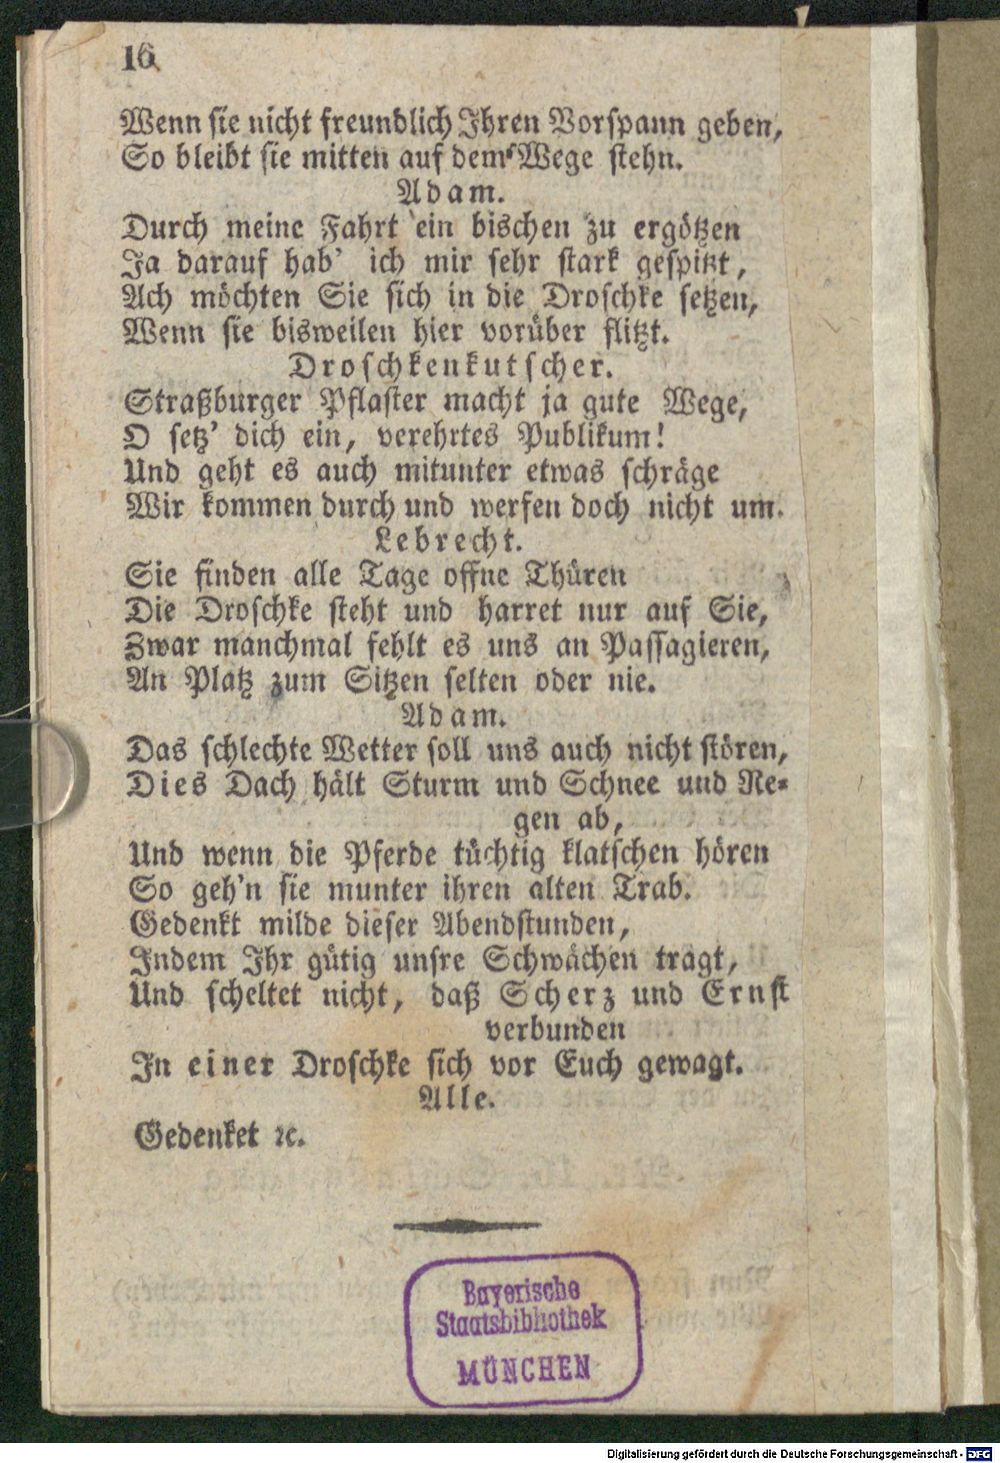 16
Wenn sie nicht freundlich Ihren Vorspann geben,
So bleibt sie mitten auf dem Wege stehn.
Adam.
Durch meine Fahrt ein bischen zu ergötzen
Ja darauf hab' ich mir sehr stark gespitzt,
Ach möchten Sie sich in die Droschke setzen,
Wenn sie bisweilen hier vorüber flitzt.
Droschkenkutscher.
Straßburger Pflaster macht ja gute Wege,
O setz' dich ein, verehrtes Publikum!
Und geht es auch mitunter etwas schräge
Wir kommen durch und werfen doch nicht um.
Lebrecht.
Sie finden alle Tage offne Thüren
Die Droschke steht und harret nur auf Sie,
Zwar manchmal fehlt es uns an Passagieren,
An Platz zum Sitzen selten oder nie.
Adam.
Das schlechte Wetter soll uns auch nicht stören,
Dies Dach hält Sturm und Schnee und Re-
gen ab,
Und wenn die Pferde tüchtig klatschen hören
So geh'n sie munter ihren alten Trab.
Gedenkt milde dieser Abendstunden,
Indem Ihr gütig unsre Schwächen tragt,
Und scheltet nicht, daß Scherz und Ernst
verbunden
In einer Droschke sich vor Euch gewagt.
Alle.
Gedenket ꝛc.
Bayerische
Staatsbibliothek
MÜNCHEN
Digitalisierung gefördert durch die Deutsche Forschungsgemeinschaft - DFG